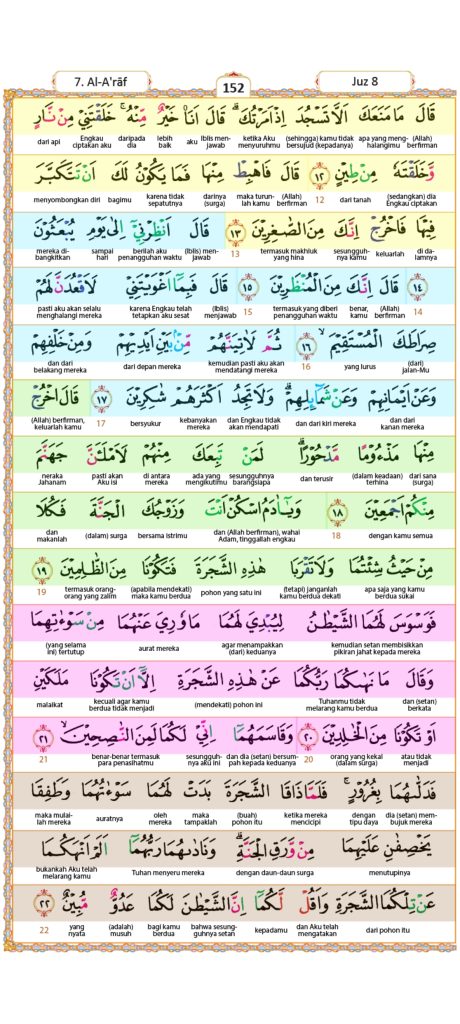 7. Al-A'rāf
152
Juz 8
قَالَ مَا مَنَعَكَ اَلَّا تَسْجُدَ اِذْ اَمَرْتُكَ ۗ قَالَ اَنَا۠ خَيْرٌ مِّنْهُ ۚ خَلَقْتَنِيْ مِنْ نَّارٍ
(Allah) berfirman apa yang meng-halangimu (sehingga) kamu tidak bersujud (kepadanya) ketika Aku menyuruhmu Iblis men-jawab aku lebih baik daripada dia Engkau ciptakan aku dari api
وَّخَلَقْتَهٗ مِنْ طِيْنٍ ١٢ قَالَ فَاهْبِطْ مِنْهَا فَمَا يَكُوْنُ لَكَ اَنْ تَتَكَبَّرَ
(sedangkan) dia Engkau ciptakan dari tanah 12 (Allah) berfirman maka turun-lah kamu darinya (surga) karena tidak sepatutnya bagimu menyombongkan diri
فِيْهَا فَاخْرُجْ اِنَّكَ مِنَ الصّٰغِرِيْنَ ١٣ قَالَ اَنْظِرْنِيْٓ اِلٰى يَوْمِ يُبْعَثُوْنَ
di da-lamnya keluarlah sesungguh-nya kamu termasuk makhluk yang hina 13 (Iblis) men-jawab berilah aku penangguhan waktu sampai hari mereka di-bangkitkan
١٤ قَالَ اِنَّكَ مِنَ الْمُنْظَرِيْنَ ١٥ قَالَ فَبِمَآ اَغْوَيْتَنِيْ لَاَقْعُدَنَّ لَهُمْ
14 (Allah) berfirman benar, kamu termasuk yang diberi penangguhan waktu 15 (Iblis) menjawab karena Engkau telah tetapkan aku sesat pasti aku akan selalu menghalangi mereka
صِرَاطَكَ الْمُسْتَقِيْمَ ۙ ١٦ ثُمَّ لَاٰتِيَنَّهُمْ مِّنْۢ بَيْنِ اَيْدِيْهِمْ وَمِنْ خَلْفِهِمْ
(dari) jalan-Mu yang lurus 16 kemudian pasti aku akan mendatangi mereka dari depan mereka dan dari belakang mereka
وَعَنْ اَيْمَانِهِمْ وَعَنْ شَمَاۤىِٕلِهِمْ ۗ وَلَا تَجِدُ اَكْثَرَهُمْ شٰكِرِيْنَ ١٧ قَالَ اخْرُجْ
dan dari kanan mereka dan dari kiri mereka dan Engkau tidak akan mendapati kebanyakan mereka bersyukur 17 (Allah) berfirman, keluarlah kamu
مِنْهَا مَذْءُوْمًا مَّدْحُوْرًا ۗ لَمَنْ تَبِعَكَ مِنْهُمْ لَاَمْلَـَٔنَّ جَهَنَّمَ
dari sana (surga) (dalam keadaan) terhina dan terusir sesungguhnya barangsiapa ada yang mengikutimu di antara mereka pasti akan Aku isi neraka Jahanam
مِنْكُمْ اَجْمَعِيْنَ ١٨ وَيٰٓاٰدَمُ اسْكُنْ اَنْتَ وَزَوْجُكَ الْجَنَّةَ فَكُلَا
dengan kamu semua 18 dan (Allah berfirman), wahai Adam, tinggallah engkau bersama istrimu (dalam) surga dan makanlah
مِنْ حَيْثُ شِئْتُمَا وَلَا تَقْرَبَا هٰذِهِ الشَّجَرَةَ فَتَكُوْنَا مِنَ الظّٰلِمِيْنَ ١٩
apa saja yang kamu berdua sukai (tetapi) janganlah kamu berdua dekati pohon yang satu ini (apabila mendekati) maka kamu berdua termasuk orang-orang yang zalim 19
فَوَسْوَسَ لَهُمَا الشَّيْطٰنُ لِيُبْدِيَ لَهُمَا مَا وٗرِيَ عَنْهُمَا مِنْ سَوْءٰتِهِمَا
kemudian setan membisikkan pikiran jahat kepada mereka agar menampakkan (dari) keduanya aurat mereka (yang selama ini) tertutup
وَقَالَ مَا نَهٰىكُمَا رَبُّكُمَا عَنْ هٰذِهِ الشَّجَرَةِ اِلَّآ اَنْ تَكُوْنَا مَلَكَيْنِ
dan (setan) berkata Tuhanmu tidak melarang kamu berdua (mendekati) pohon ini kecuali agar kamu berdua tidak menjadi malaikat
اَوْ تَكُوْنَا مِنَ الْخٰلِدِيْنَ ٢٠ وَقَاسَمَهُمَآ اِنِّيْ لَكُمَا لَمِنَ النّٰصِحِيْنَ ۙ ٢١
atau tidak menjadi orang yang kekal (dalam surga) 20 dan dia (setan) bersum-pah kepada keduanya sesungguh-nya aku ini benar-benar termasuk para penasihatmu 21
فَدَلّٰىهُمَا بِغُرُوْرٍ ۚ فَلَمَّا ذَاقَا الشَّجَرَةَ بَدَتْ لَهُمَا سَوْءٰتُهُمَا وَطَفِقَا
dia (setan) mem-bujuk mereka dengan tipu daya ketika mereka mencicipi (buah) pohon itu maka tampaklah oleh mereka auratnya maka mulai-lah mereka
يَخْصِفٰنِ عَلَيْهِمَا مِنْ وَّرَقِ الْجَنَّةِ ۗ وَنَادٰىهُمَا رَبُّهُمَآ اَلَمْ اَنْهَكُمَا
menutupinya dengan daun-daun surga Tuhan menyeru mereka bukankah Aku telah melarang kamu
عَنْ تِلْكُمَا الشَّجَرَةِ وَاَقُلْ لَّكُمَآ اِنَّ الشَّيْطٰنَ لَكُمَا عَدُوٌّ مُّبِيْنٌ ٢٢
dari pohon itu dan Aku telah mengatakan kepadamu bahwa sesung-guhnya setan bagi kamu berdua (adalah) musuh yang nyata 22